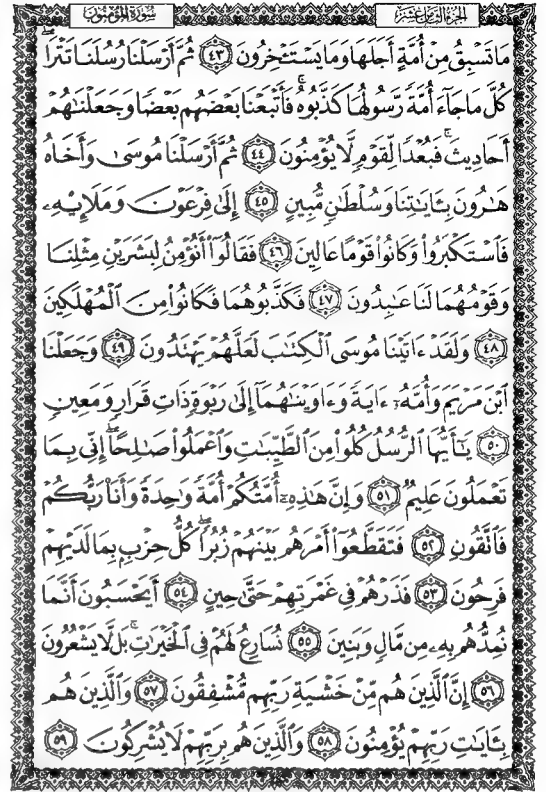 الجزء الثامن عشر سورة المؤمنون
مَا تَسْبِقُ مِنْ أُمَّةٍ أَجَلَهَا وَمَا يَسْتَـْٔخِرُونَ ٤٣ ثُمَّ أَرْسَلْنَا رُسُلَنَا تَتْرَا ۖ
كُلَّ مَا جَآءَ أُمَّةً رَّسُولُهَا كَذَّبُوهُ ۚ فَأَتْبَعْنَا بَعْضَهُم بَعْضًا وَجَعَلْنَٰهُمْ
أَحَادِيثَ ۚ فَبُعْدًا لِّقَوْمٍ لَّا يُؤْمِنُونَ ٤٤ ثُمَّ أَرْسَلْنَا مُوسَىٰ وَأَخَاهُ
هَٰرُونَ بِـَٔايَٰتِنَا وَسُلْطَٰنٍ مُّبِينٍ ٤٥ إِلَىٰ فِرْعَوْنَ وَمَلَإِي۟هِۦ
فَٱسْتَكْبَرُوا۟ وَكَانُوا۟ قَوْمًا عَالِينَ ٤٦ فَقَالُوٓا۟ أَنُؤْمِنُ لِبَشَرَيْنِ مِثْلِنَا
وَقَوْمُهُمَا لَنَا عَٰبِدُونَ ٤٧ فَكَذَّبُوهُمَا فَكَانُوا۟ مِنَ ٱلْمُهْلَكِينَ
٤٨ وَلَقَدْ ءَاتَيْنَا مُوسَى ٱلْكِتَٰبَ لَعَلَّهُمْ يَهْتَدُونَ ٤٩ وَجَعَلْنَا
ٱبْنَ مَرْيَمَ وَأُمَّهُۥٓ ءَايَةً وَءَاوَيْنَٰهُمَآ إِلَىٰ رَبْوَةٍ ذَاتِ قَرَارٍ وَمَعِينٍ
٥٠ يَٰٓأَيُّهَا ٱلرُّسُلُ كُلُوا۟ مِنَ ٱلطَّيِّبَٰتِ وَٱعْمَلُوا۟ صَٰلِحًا ۖ إِنِّى بِمَا
تَعْمَلُونَ عَلِيمٌ ٥١ وَإِنَّ هَٰذِهِۦٓ أُمَّتُكُمْ أُمَّةً وَٰحِدَةً وَأَنَا۠ رَبُّكُمْ
فَٱتَّقُونِ ٥٢ فَتَقَطَّعُوٓا۟ أَمْرَهُم بَيْنَهُمْ زُبُرًا ۖ كُلُّ حِزْبٍۭ بِمَا لَدَيْهِمْ
فَرِحُونَ ٥٣ فَذَرْهُمْ فِى غَمْرَتِهِمْ حَتَّىٰ حِينٍ ٥٤ أَيَحْسَبُونَ أَنَّمَا
نُمِدُّهُم بِهِۦ مِن مَّالٍ وَبَنِينَ ٥٥ نُسَارِعُ لَهُمْ فِى ٱلْخَيْرَٰتِ ۚ بَل لَّا يَشْعُرُونَ
٥٦ إِنَّ ٱلَّذِينَ هُم مِّنْ خَشْيَةِ رَبِّهِم مُّشْفِقُونَ ٥٧ وَٱلَّذِينَ هُم
بِـَٔايَٰتِ رَبِّهِمْ يُؤْمِنُونَ ٥٨ وَٱلَّذِينَ هُم بِرَبِّهِمْ لَا يُشْرِكُونَ ٥٩